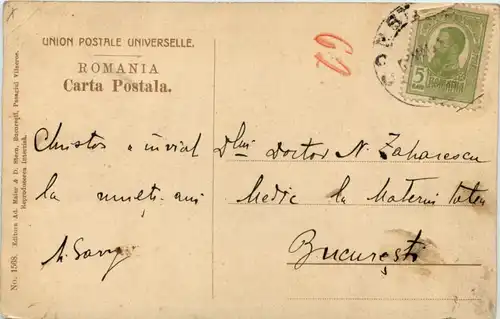 UNION POSTALE UNIVERSELLE.
ROMANIA
Carta Postala.
62
5
Christos a înviat
la mulţi ani
Dlui Doctor N. Zaharescu
Medic la Maternitatea
Bucureşti
No. 1568. Editura Ad. Maier & D. Stern, Bucureşti, Pasagiul Villacros.
Reproducerea interzisă.